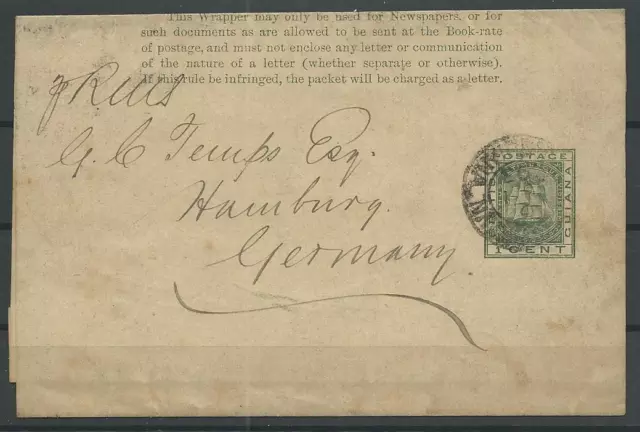 This Wrapper may only be used for Newspapers, or for
such documents as are allowed to be sent at the Book-rate
of postage, and must not enclose any letter or communication
of the nature of a letter (whether separate or otherwise).
If this rule be infringed, the packet will be charged as a letter.
G. C. Temps Esq.
Hamburg.
Germany.
POSTAGE
GUIANA
1 CENT